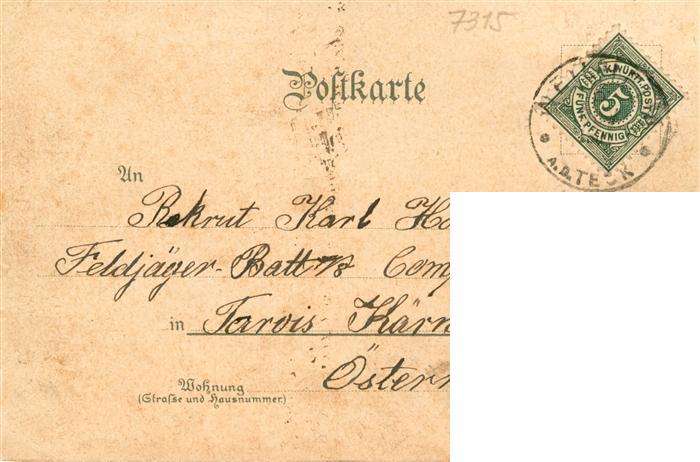 7315
Postkarte
K. WÜRTT. POST
FÜNF PFENNIG
5
A. D. TECK
An
Rekrut Karl
Feldjäger-Batt
in Tarvis Kärn
Östern
Wohnung
(Straße und Hausnummer)